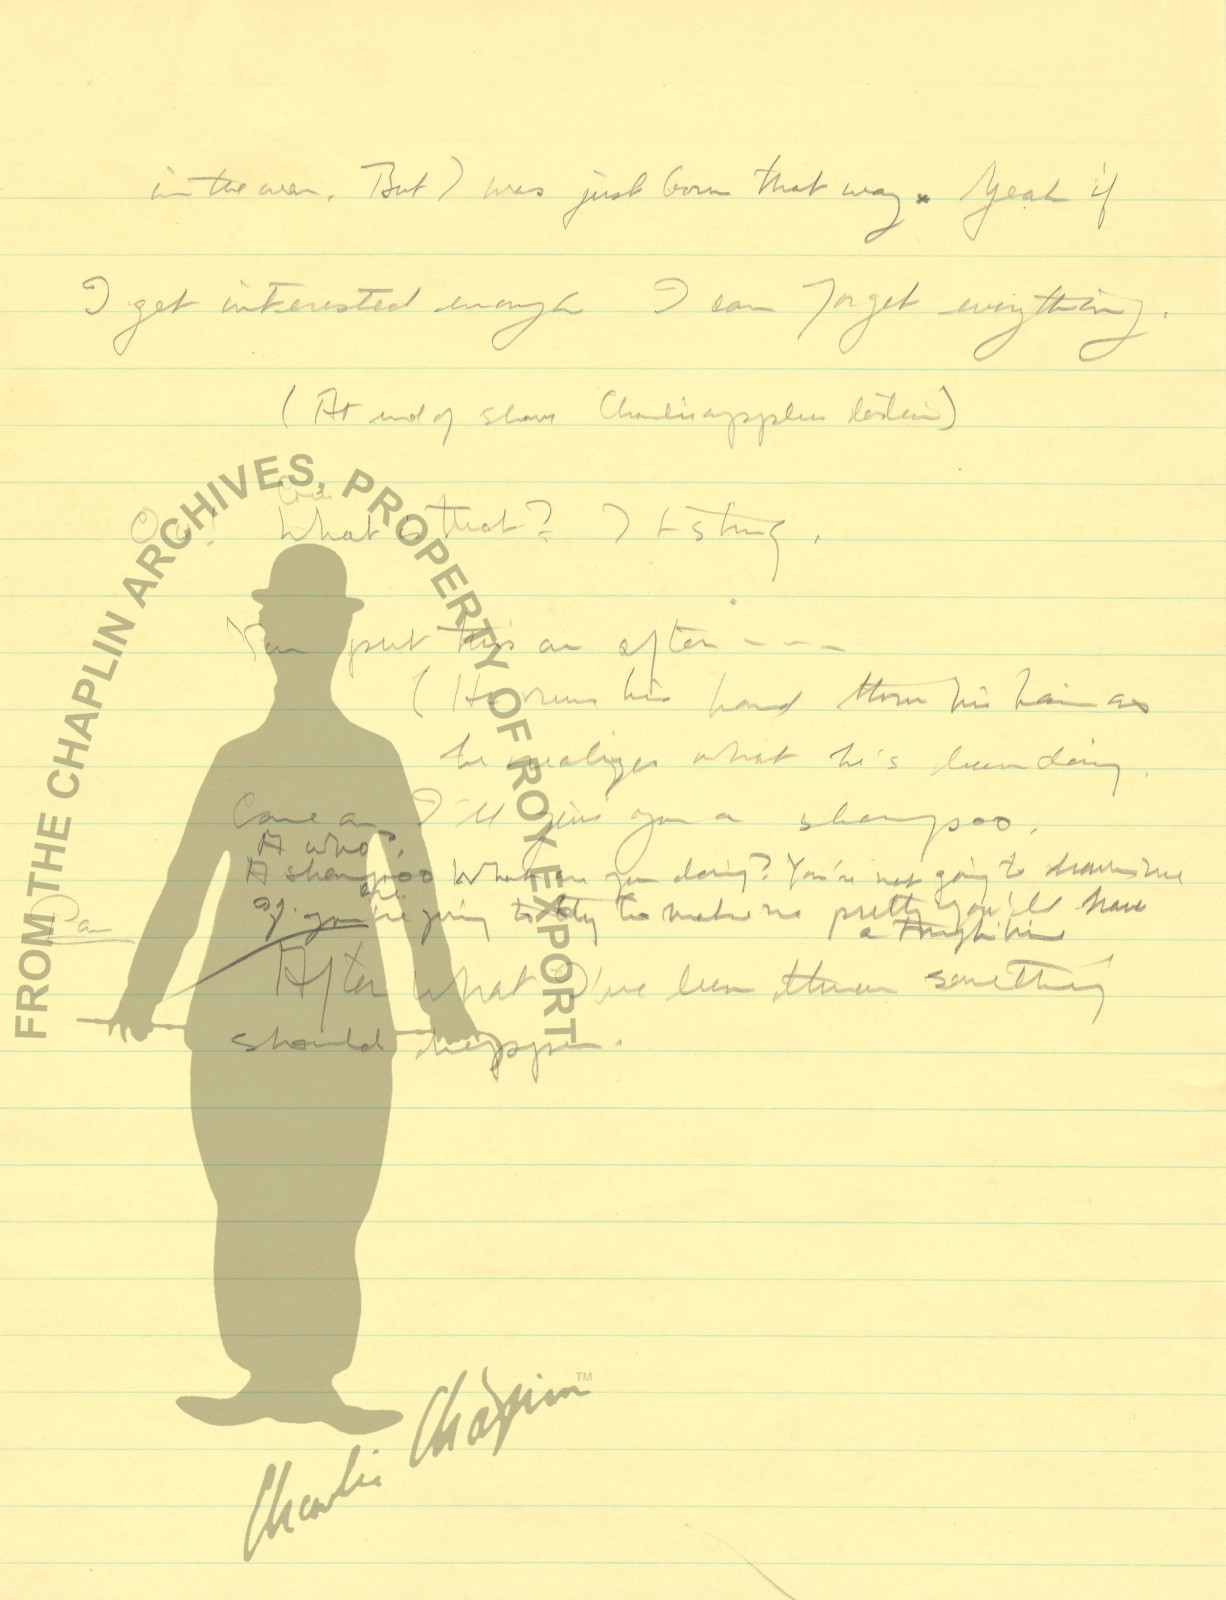 in the over. But I was just born that way. Yeah if
I get interested enough I can forget everything.
(At end of shave Charlie applies lotion)
Oh! What is that? It stings.
You put this on after - - -
(He runs his hand thru his hair as
he realizes what he's been doing.
Come on I'll give you a shampoo.
A who?
A shampoo What are you doing? You're not going to
If you're going to try to make me pretty you'll have
a
After what I've been thru something
should happen.
FROM THE CHAPLIN ARCHIVES, PROPERTY OF ROY EXPORT
Charlie Chaplin™